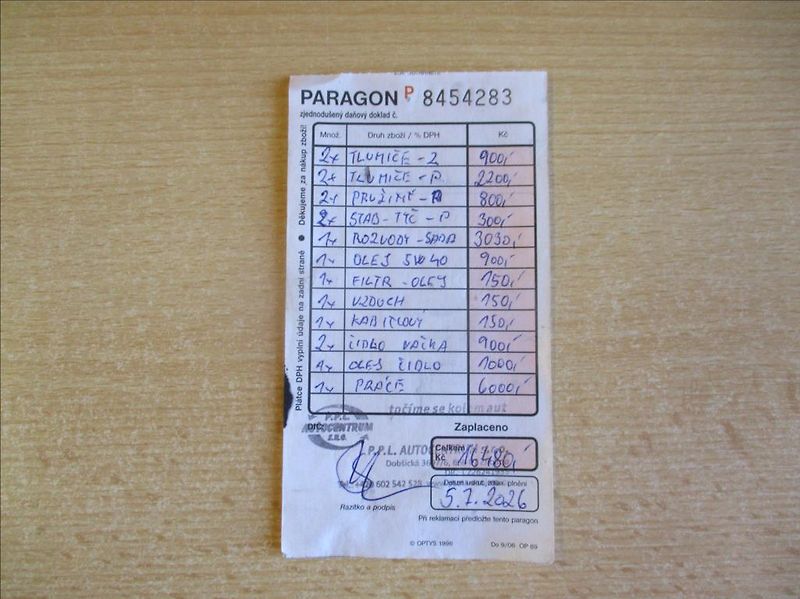 PARAGON P 8454283
zjednodušený daňový doklad č.
Množ. Druh zboží / % DPH Kč
2x TLUMIČE - Z 900,-
2x TLUMIČE - P 2200,-
2x PRUŽINY - P 800,-
2x STAB - TYČ - P 300,-
1x ROZVODY - SADA 3030,-
1x OLEJ 5W40 900,-
1x FILTR - OLEJ 150,-
1x VZDUCH 150,-
1x KABINOVÝ 150,-
2x ČIDLO VAČKA 900,-
1x OLEJ ČIDLO 1000,-
1x PRÁCE 6000,-
Děkujeme za nákup zboží!
Plátce DPH vyplní údaje na zadní straně
točíme se kolem aut
P.P.L.
AUTOCENTRUM
s.r.o.
DIČ:
Zaplaceno
P.P.L. AUTOC s.r.o.
Celkem Kč 16480,-
Dobšická
Tel.: 602 542 528
Datum usk. zdan. plnění
5.7.2026
Razítko a podpis
Při reklamaci předložte tento paragon
© OPTYS 1998 Do 9/06 OP 69